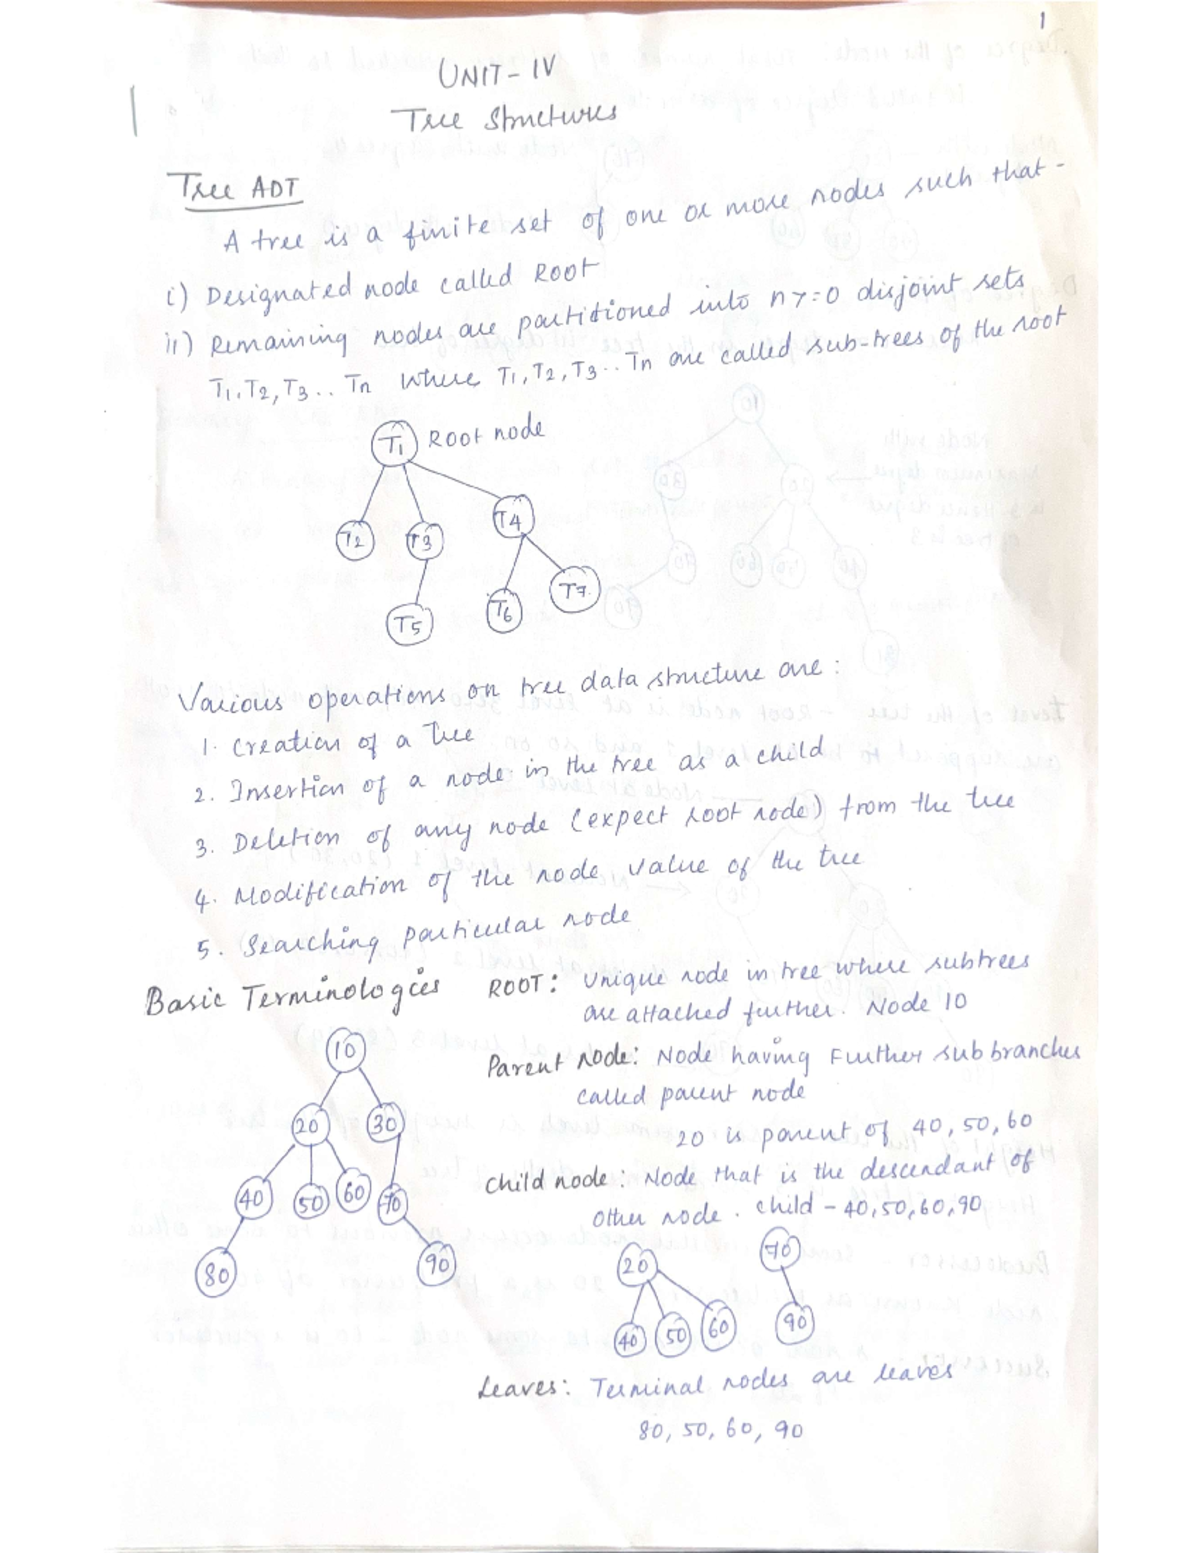 1
UNIT-IV
Tree Structures
Tree ADT
A tree is a finite set of one or more nodes such that -
i) Designated node called Root
ii) Remaining nodes are partitioned into n>=0 disjoint sets
T1, T2, T3.. Tn where T1, T2, T3.. Tn are called sub-trees of the root
T1 Root node
T2 T3 T4
T5 T6 T7
Various operations on tree data structure are:
1. Creation of a tree
2. Insertion of a node in the tree as a child
3. Deletion of any node (expect root node) from the tree
4. Modification of the node value of the tree
5. Searching particular node
Basic Terminologies
10
20 30
40 50 60 70
80 90
ROOT: Unique node in tree where subtrees
are attached further. Node 10
Parent Node: Node having Further sub branches
called parent node
20 is parent of 40, 50, 60
Child node: Node that is the descendant of
other node. child - 40,50,60,90
20 70
40 50 60 90
Leaves: Terminal nodes are leaves
80, 50, 60, 90